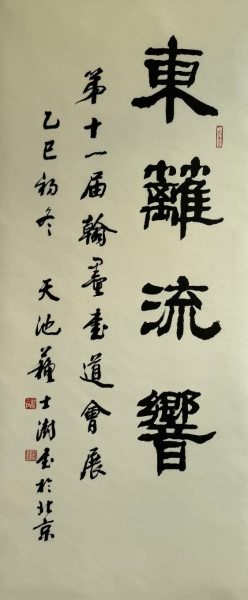 東籬流響
第十一届翰墨書道會展
乙巳初冬 天池蘇士澍書於北京